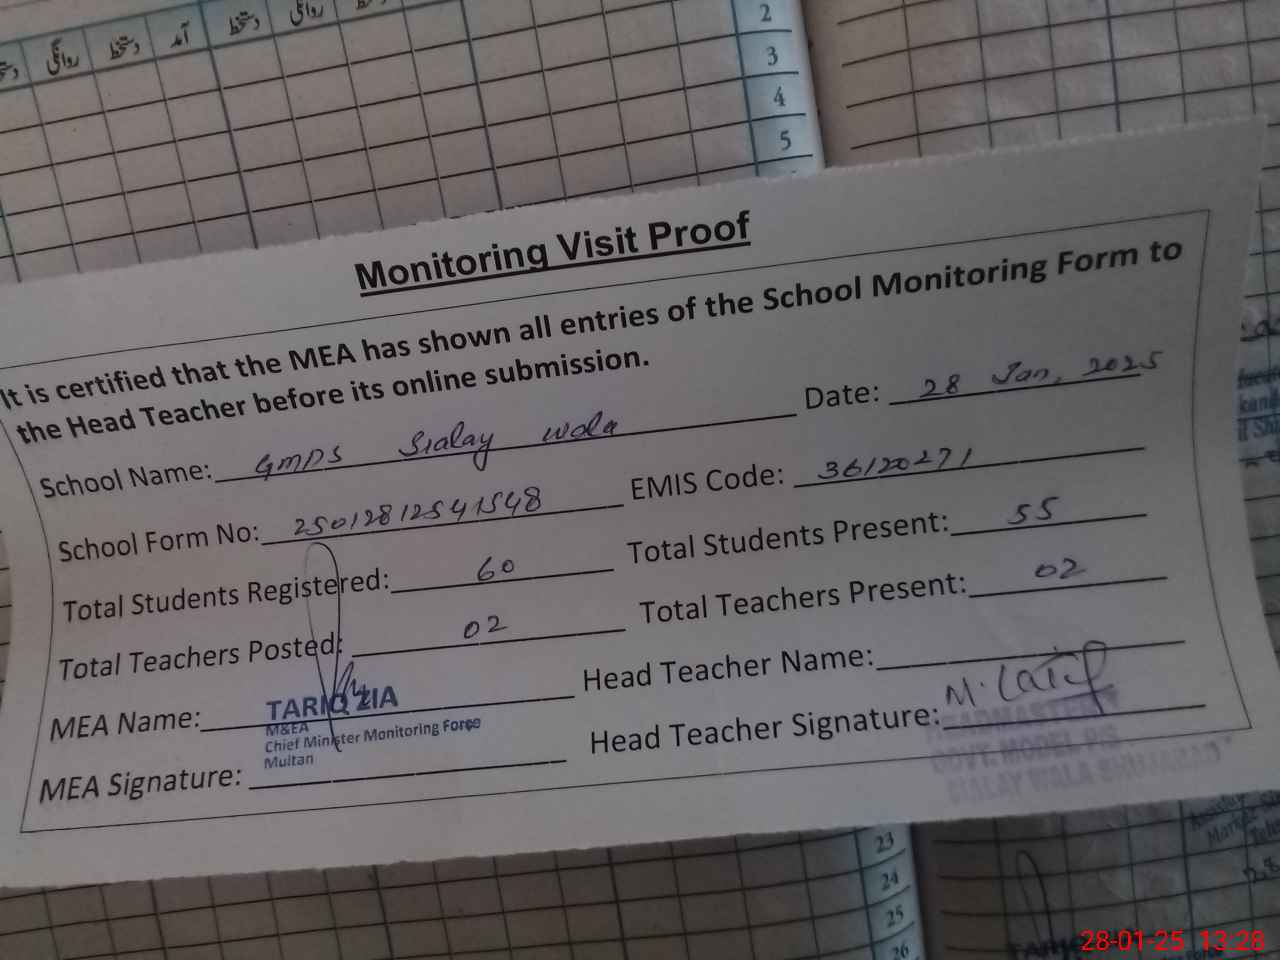 روانگی دستخط آمد دستخط روانگی
2
3
4
5
Monitoring Visit Proof
It is certified that the MEA has shown all entries of the School Monitoring Form to
the Head Teacher before its online submission.
School Name: GMPS Sialay wala Date: 28 Jan, 2025
School Form No: 25012812541548 EMIS Code: 36120271
Total Students Registered: 60 Total Students Present: 55
Total Teachers Posted: 02 Total Teachers Present: 02
MEA Name: TARIQ ZIA Head Teacher Name:
M&EA
Chief Minister Monitoring Force
Multan
MEA Signature: Head Teacher Signature: M. Latif
HEADMASTER
GOVT. MODEL P/S
SIALAY WALA SHUJABAD
23
24
25
26
28-01-25 13:28